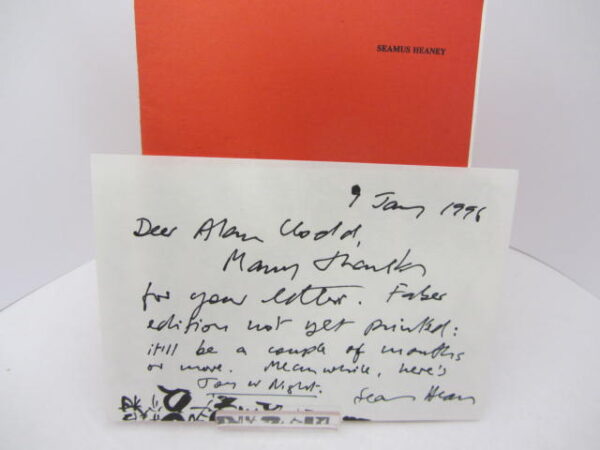 SEAMUS HEANEY
9 Jany 1996
Dear Alan Clodd,
Many thanks
for your letter. Faber
edition not yet printed:
it'll be a couple of months
or more. Meanwhile, here's
Jon or Night.
Seamus Heaney